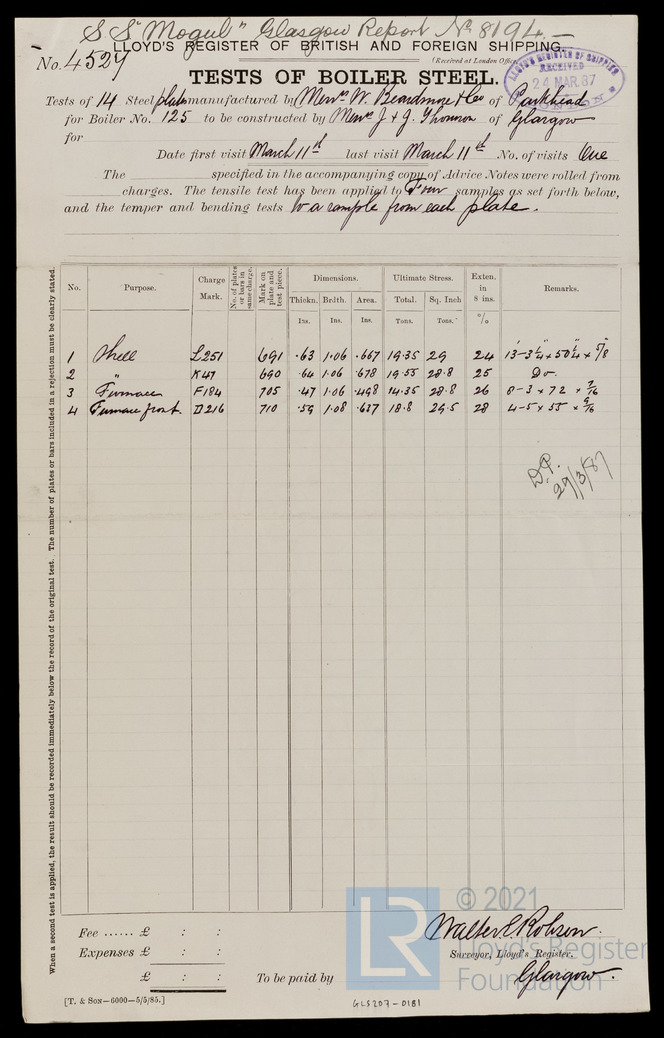 S S "Mogul" Glasgow Report No. 8194.—
LLOYD'S REGISTER OF BRITISH AND FOREIGN SHIPPING.
No. 4527
(Received at London Office
LLOYD'S REGISTER OF SHIPPING
RECEIVED
24 MAR. 87
TESTS OF BOILER STEEL.
Tests of 14 Steel plates manufactured by Messrs W. Beardmore & Co of Parkhead
for Boiler No. 125 to be constructed by Messrs J & G. Thomson of Glasgow
for
Date first visit March 11th last visit March 11th No. of visits One
The specified in the accompanying copy of Advice Notes were rolled from
charges. The tensile test has been applied to Four samples as set forth below,
and the temper and bending tests to a sample from each plate.
No. Purpose. Charge Mark. No. of plates or bars in same charge. Mark on plate and test piece. Dimensions. Ultimate Stress. Exten. in 8 ins. Remarks.
Thickn. Brdth. Area. Total. Sq. Inch
Ins. Ins. Ins. Tons. Tons. %
1 Shell L251 691 .63 1.06 .667 19.35 29 24 13-3¼ x 50¼ x 5/8
2 " K47 690 .64 1.06 .678 19.55 28.8 25 Do.
3 Furnace F184 705 .47 1.06 .498 14.35 28.8 26 8-3 x 72 x 7/16
4 Furnace front D216 710 .59 1.08 .637 18.8 29.5 28 4-5 x 55 x 9/16
D.P.
29/3/87
When a second test is applied, the result should be recorded immediately below the record of the original test. The number of plates or bars included in a rejection must be clearly stated.
Fee ...... £ : :
Expenses £ : :
£ : :
To be paid by
Walter C. Robson.
Surveyor, Lloyd's Register.
Glasgow.
[T. & SON—6000—5/5/85.]
GLS207-0181
LR
© 2021
Lloyd's Register
Foundation